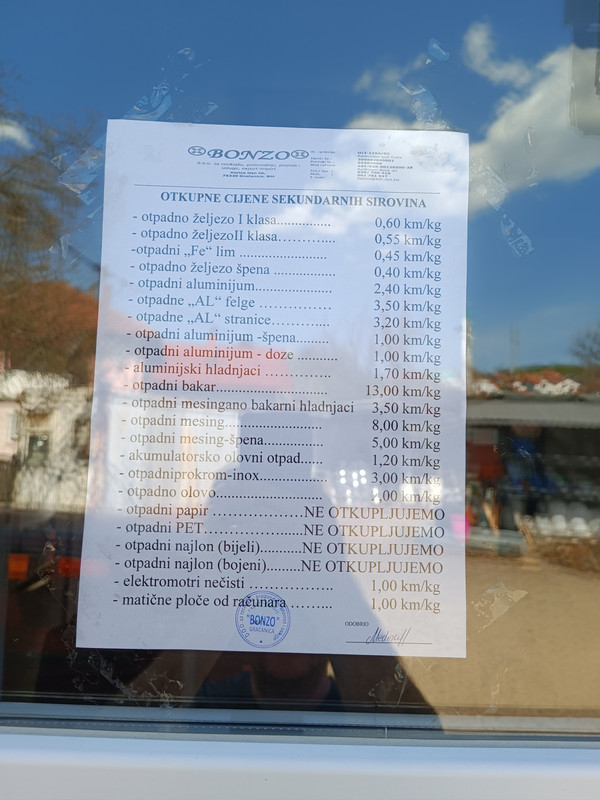 BONZO
OTKUPNE CIJENE SEKUNDARNIH SIROVINA
- otpadno željezo I klasa............... 0,60 km/kg
- otpadno željezoII klasa............. 0,55 km/kg
-otpadni „Fe" lim ........................ 0,45 km/kg
- otpadno željezo špena ................ 0,40 km/kg
- otpadni aluminijum..................... 2,40 km/kg
- otpadne „AL" felge ................... 3,50 km/kg
- otpadne „AL" stranice............... 3,20 km/kg
- otpadni aluminijum -špena........ 1,00 km/kg
- otpadni aluminijum - doze .......... 1,00 km/kg
- aluminijski hladnjaci ................ 1,70 km/kg
- otpadni bakar............................ 13,00 km/kg
- otpadni mesingano bakarni hladnjaci 3,50 km/kg
- otpadni mesing......................... 8,00 km/kg
- otpadni mesing-špena............... 5,00 km/kg
- akumulatorsko olovni otpad...... 1,20 km/kg
- otpadniprokrom-inox............... 3,00 km/kg
- otpadno olovo........................... ,00 km/kg
- otpadni papir .....................NE OTKUPLJUJEMO
- otpadni PET.......................NE OTKUPLJUJEMO
- otpadni najlon (bijeli)..........NE OTKUPLJUJEMO
- otpadni najlon (bojeni)........NE OTKUPLJUJEMO
- elektromotri nečisti .................. 1,00 km/kg
- matične ploče od računara ......... 1,00 km/kg
BONZO
GRAČANICA
ODOBRIO